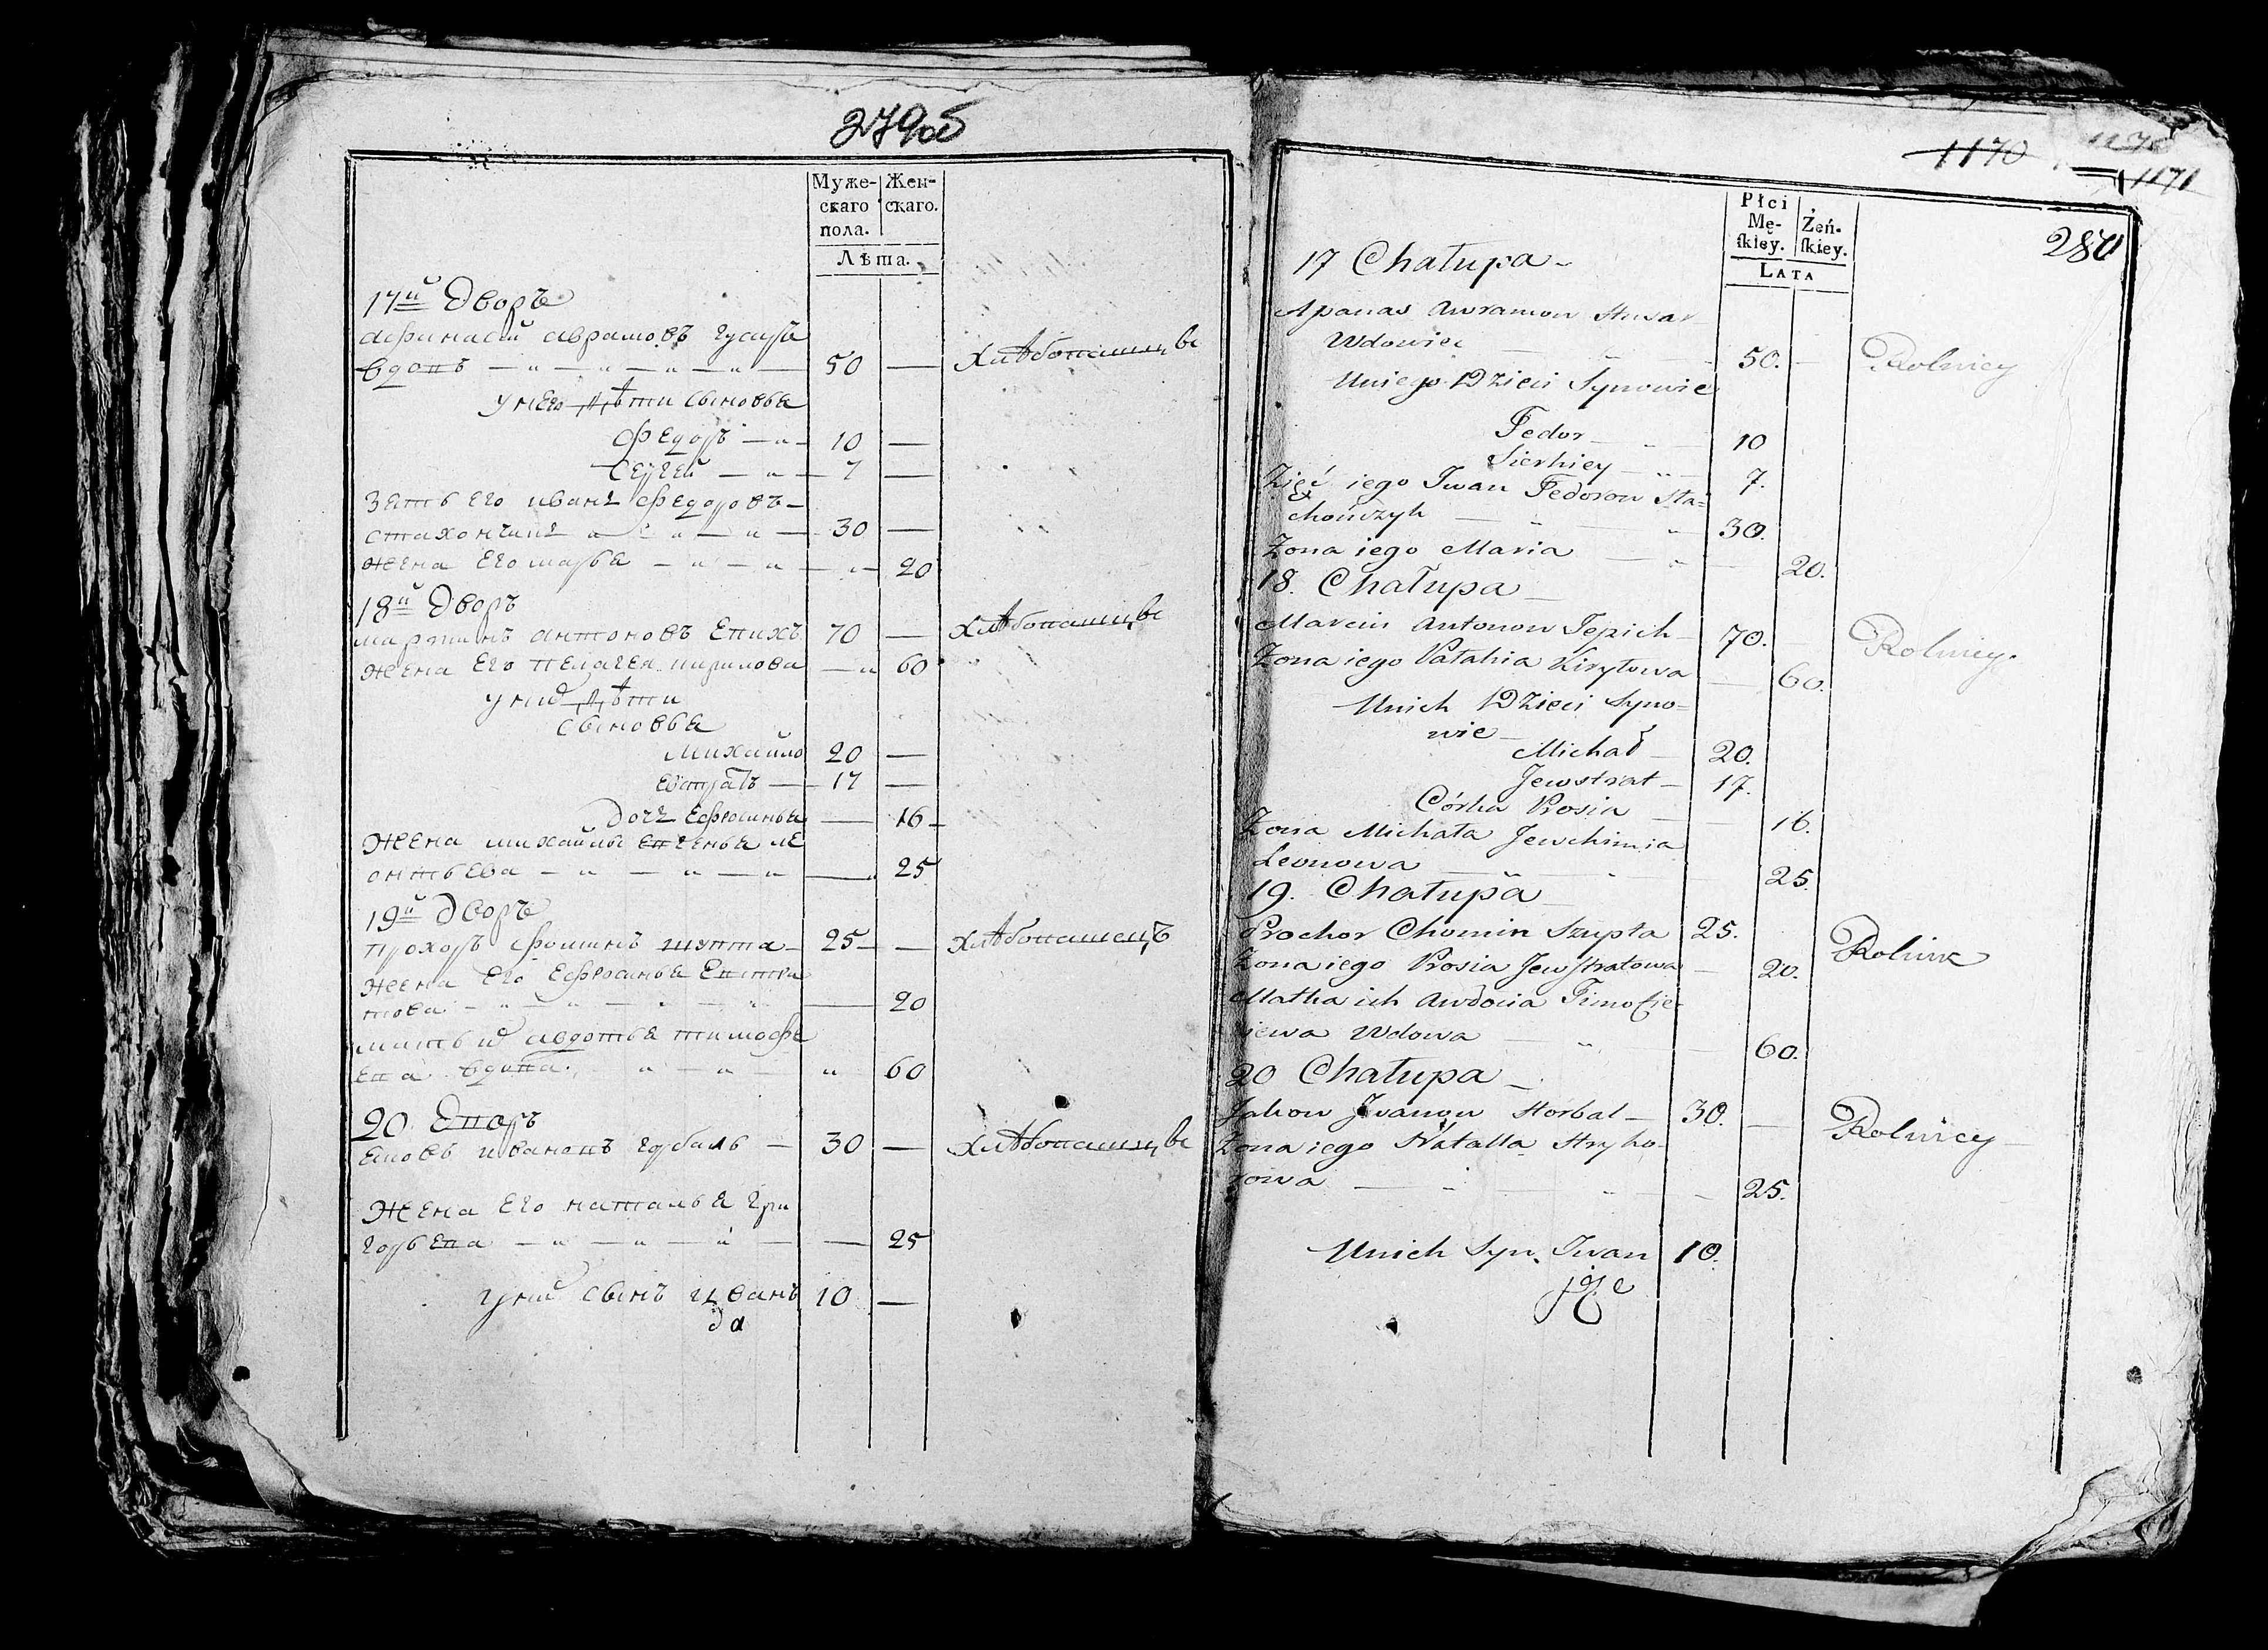 279об
Муже- Жен-
скаго скаго.
пола.
Лѣта.
17й Дворъ
Афанасий аврамовъ гусаръ
вдовъ 50 — Хлѣбопашцы
у него дѣти сыновья
Федоръ 10 —
Сергей 7 —
Зять его иванъ федоровъ
стахончикъ 30 —
жена его марья 20
18й Дворъ
мартинъ антоновъ Епихъ 70 — хлѣбопашцы
жена его пелагея кирилова 60
у них дѣти
сыновья
михайло 20 —
евстратъ 17 —
дочь Ефросинья 16
жена михайлы евгенья ле
онтьева 25
19й дворъ
прохоръ фоминъ шупта 25 — хлѣбопашецъ
жена его ефросинья Евстра
това 20
мать их авдотья тимофе
ева вдова 60
20 Дворъ
яковъ ивановъ горбаль 30 — хлѣбопашцы
жена его наталья гри
горьева 25
у них сынъ иванъ 10 —
да
1170
1171
280
Płci
Mę- Żeń-
skiey. skiey.
LATA
17 Chałupa
Apanas Awramow Husar
Wdowiec 50. Rolnicy
Uniego Dzieci Synowie
Fedor 10
Sierhiey 7.
Zięć iego Iwan Fedorow Sta=
chończyk 30.
Żona iego Maria 20.
18. Chałupa
Marcin Antonow Jepich 70. Rolnicy.
Żona iego Pałahia Kiryłowa 60.
Unich Dzieci Syno=
wie
Michał 20.
Jewstrat 17.
Córka Prosia 16.
Żona Michała Jewchimia
Leonowa 25.
19. Chałupa
Prochor Chomin Szupta 25. Rolnik
Żona iego Prosia Jewstratowa 20.
Matka ich Awdocia Timofie-
iewa Wdowa 60.
20 Chałupa
Jakow Iwanow Horbal 30. — Rolnicy
Żona iego Natalla Hryho-
rowa 25.
Unich Syn Iwan 10.